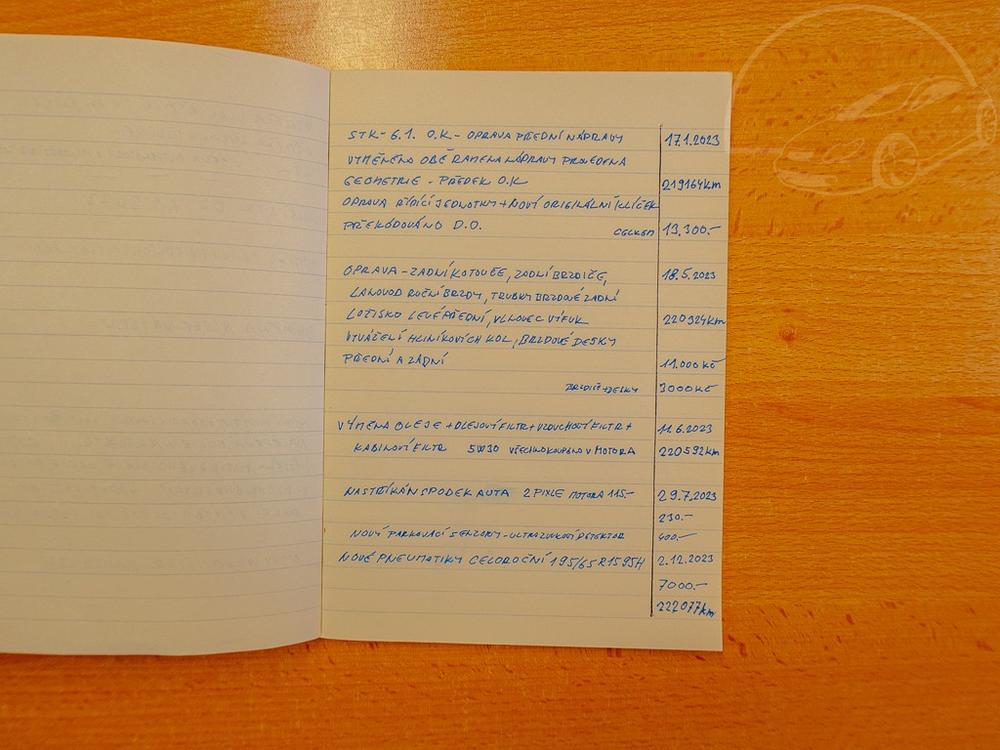 STK- 6.1. O.K - OPRAVA PŘEDNÍ NÁPRAVY 17.1.2023
VYMĚNĚNO OBĚ RAMENA NÁPRAVY PROVEDENA
GEOMETRIE - PŘEDEK O.K 219164km
OPRAVA ŘÍDÍCÍ JEDNOTKY + NOVÍ ORIGINÁLNÍ KLÍČEK
PŘEKÓDOVÁNO D.O. CELKEM 13.300.-
OPRAVA - ZADNÍ KOTOUČE, ZADNÍ BRZDIČE, 18.5.2023
LANOVOD RUČNÍ BRZDY, TRUBKY BRZDOVÉ ZADNÍ
LOŽISKO LEVÉ PŘEDNÍ, VLNOVEC VÝFUK 220324km
VYVÁŽENÍ HLINÍKOVÝCH KOL, BRZDOVÉ DESKY
PŘEDNÍ A ZADNÍ 11.000 kč
BRZDIČ+DESKY 3000 Kč
VÝMĚNA OLEJE + OLEJOVÍ FILTR + VZDUCHOVÍ FILTR + 11.6.2023
KABINOVÍ FILTR 5W30 VŠECHNO KOUPENO V MOTORA 220592km
NASTŘÍKÁN SPODEK AUTA 2 PIXLE MOTORA 115.- 29.7.2023
230.-
NOVÝ PARKOVACÍ SENZORY - ULTRAZVUKOVÍ DETEKTOR 400.-
NOVÉ PNEUMATIKY CELOROČNÍ 195/65 R15 95H 2.12.2023
7000.-
222077km